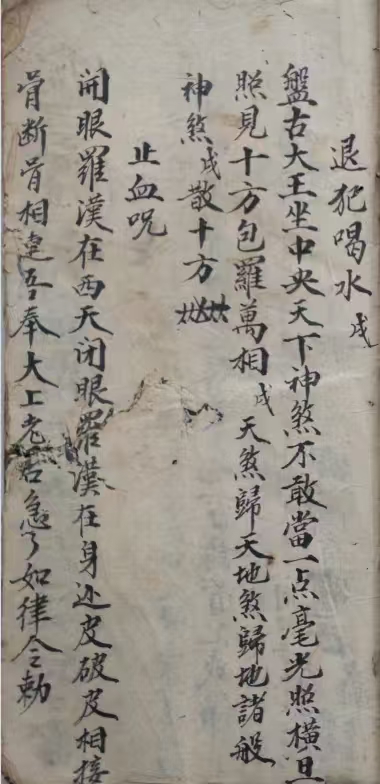 退犯喝水戌
盤古大王坐中央天下神煞不敢當一点毫光照橫旦
照見十方包羅萬相戌天煞歸天地煞歸地諸般
神煞戌散十方
止血咒
開眼羅漢在西天闭眼羅漢在身边皮破皮相接
骨断骨相連吾奉大上老君急了如律令勅